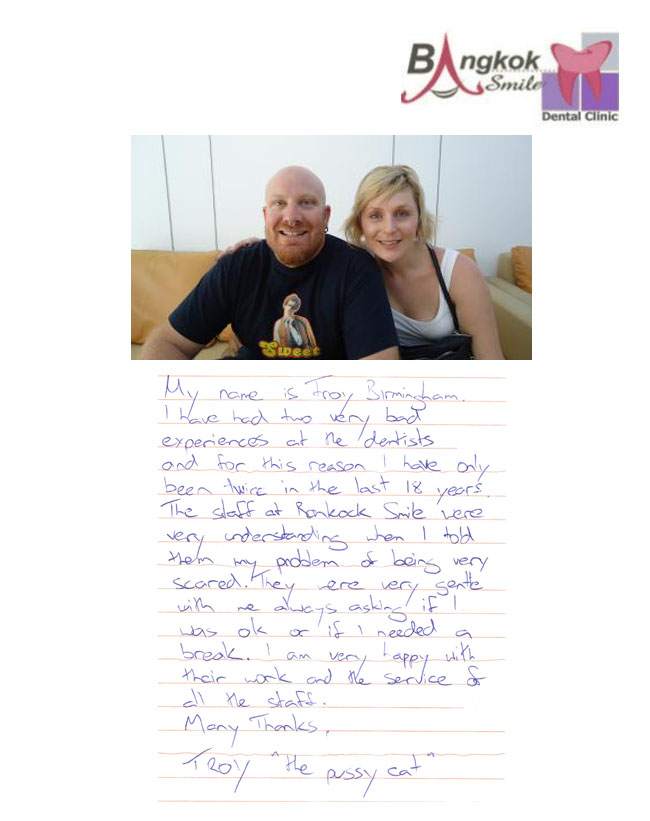 BAngkok
Smile
Dental Clinic
Sweet
My name is Troy Birmingham.
I have had two very bad
experiences at the dentists
and for this reason I have only
been twice in the last 18 years.
The staff at Bonkock Smile were
very understanding when I told
them my problem of being very
scared. They were very gentle
with me always asking if I
was ok or if I needed a
break. I am very happy with
their work and the service of
all the staff.
Many Thanks,
TROY "the pussy cat"